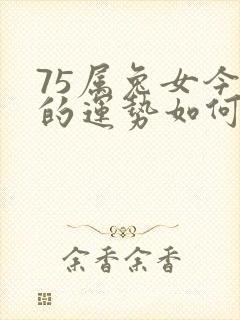 75属兔女今
的运势如何
余香余香